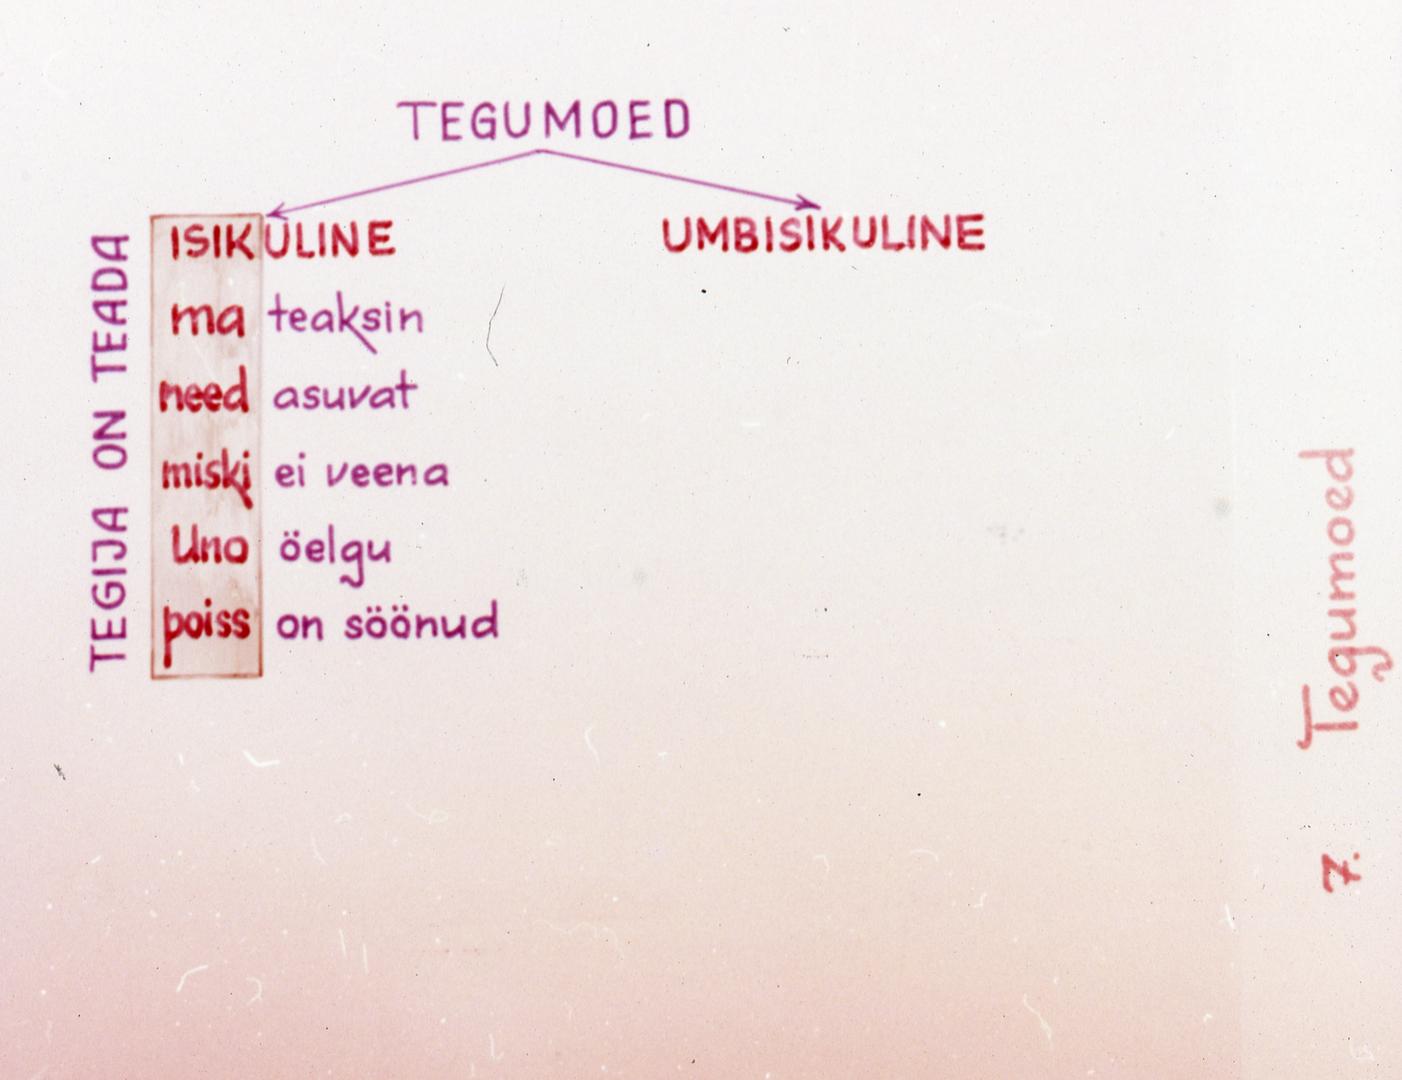 TEGUMOED
ISIKULINE
UMBISIKULINE
TEGIJA ON TEADA
ma teaksin
need asuvat
miski ei veena
Uno öelgu
poiss on söönud
7. Tegumoed